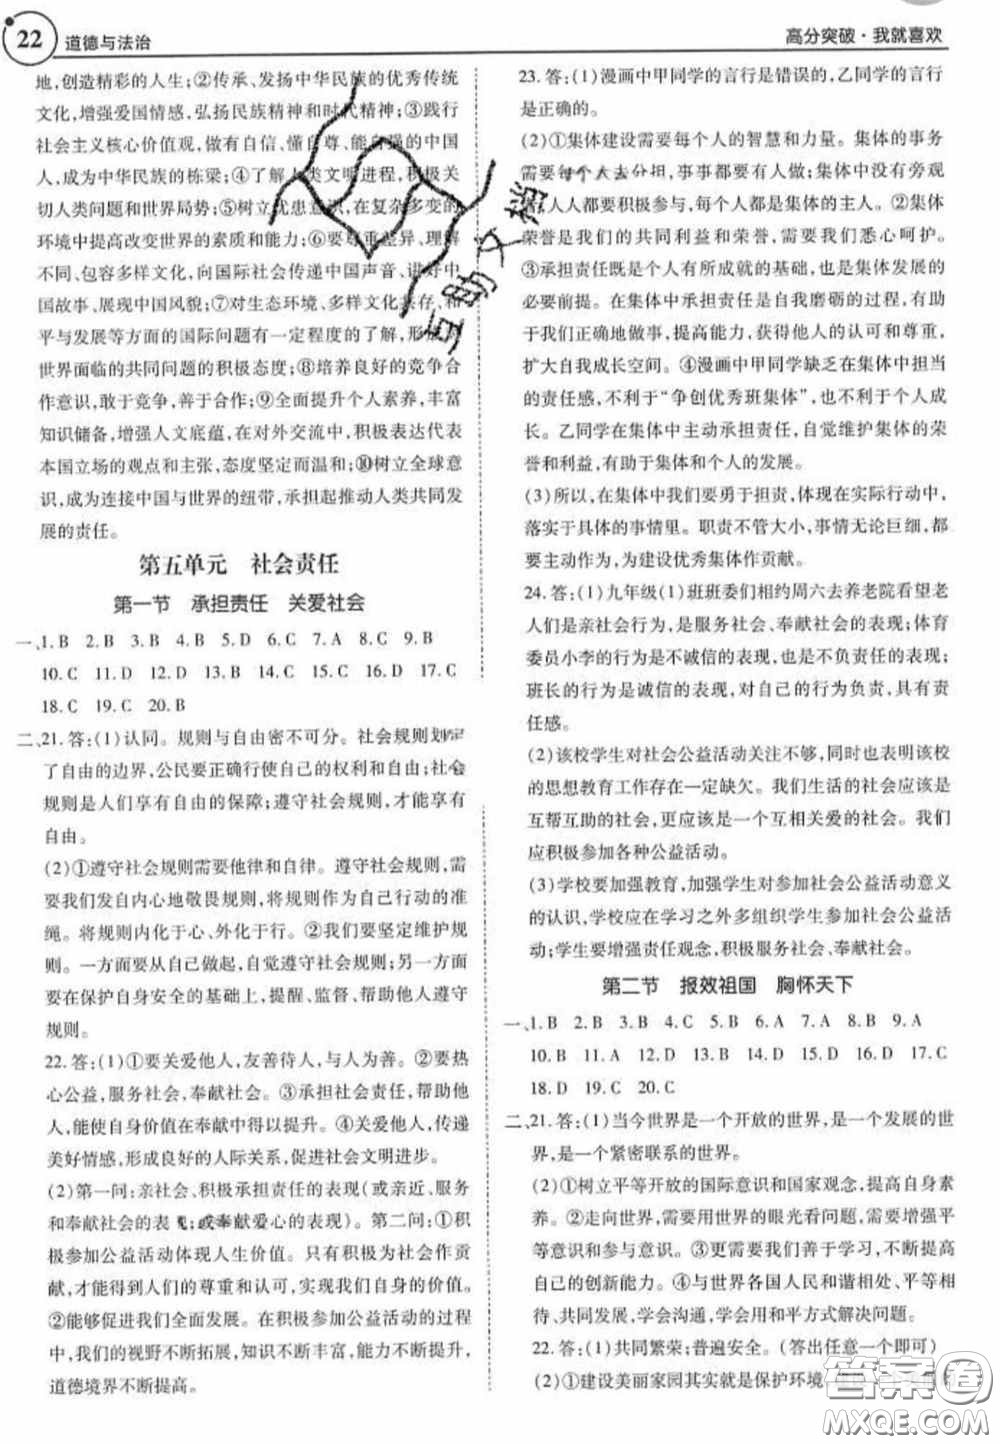 22 道德与法治
高分突破·我就喜欢
地,创造精彩的人生;②传承、发扬中华民族的优秀传统
文化,增强爱国情感,弘扬民族精神和时代精神;③践行
社会主义核心价值观,做有自信、懂自尊、能自强的中国
人,成为中华民族的栋梁;④了解人类文明进程,积极关
切人类问题和世界局势;⑤树立忧患意识,在复杂多变的
环境中提高改变世界的素质和能力;⑥要尊重差异,理解
不同、包容多样文化,向国际社会传递中国声音、讲好中
国故事、展现中国风貌;⑦对生态环境、多样文化共存、和
平与发展等方面的国际问题有一定程度的了解,形成对
世界面临的共同问题的积极态度;⑧培养良好的竞争合
作意识,敢于竞争,善于合作;⑨全面提升个人素养,丰富
知识储备,增强人文底蕴,在对外交流中,积极表达代表
本国立场的观点和主张,态度坚定而温和;⑩树立全球意
识,成为连接中国与世界的纽带,承担起推动人类共同发
展的责任。
第五单元 社会责任
第一节 承担责任 关爱社会
一、1. B 2. B 3. B 4. B 5. D 6. C 7. A 8. C 9. B
10. C 11. D 12. D 13. B 14. D 15. B 16. D 17. C
18. C 19. C 20. B
二、21. 答:(1)认同。规则与自由密不可分。社会规则划定
了自由的边界,公民要正确行使自己的权利和自由。社会
规则是人们享有自由的保障;遵守社会规则,才能享有
自由。
(2)①遵守社会规则需要他律和自律。遵守社会规则,需
要我们发自内心地敬畏规则,将规则作为自己行动的准
绳。将规则内化于心、外化于行。②我们要坚定维护规
则。一方面要从自己做起,自觉遵守社会规则;另一方面
要在保护自身安全的基础上,提醒、监督、帮助他人遵守
规则。
22. 答:(1)①要关爱他人,友善待人,与人为善。②要热
心公益,服务社会,奉献社会。③承担社会责任,帮助他
人,能使自身价值在奉献中得以提升。④关爱他人,传递
美好情感,形成良好的人际关系,促进社会文明进步。
(2)第一问:亲社会、积极承担责任的表现(或亲近、服务
和奉献社会的表现;或奉献爱心的表现)。第二问:①积
极参加公益活动体现人生价值。只有积极为社会作贡
献,才能得到人们的尊重和认可,实现我们自身的价值。
②能够促进我们全面发展。在积极参加公益活动过程
中,我们的视野不断拓展,知识不断丰富,能力不断提升,
道德境界不断提高。
23. 答:(1)漫画中甲同学的言行是错误的,乙同学的言行
是正确的。
(2)①集体建设需要每个人的智慧和力量。集体的事务
需要每个人去分担,事事都要有人做;集体中没有旁观
者,人人都要积极参与,每个人都是集体的主人。②集体
荣誉是我们的共同利益和荣誉,需要我们悉心呵护。
③承担责任既是个人有所成就的基础,也是集体发展的
必要前提。在集体中承担责任是自我磨砺的过程,有助
于我们正确地做事,提高能力,获得他人的认可和尊重,
扩大自我成长空间。④漫画中甲同学缺乏在集体中担当
的责任感,不利于“争创优秀班集体”,也不利于个人成
长。乙同学在集体中主动承担责任,自觉维护集体的荣
誉和利益,有助于集体和个人的发展。
(3)所以,在集体中我们要勇于担责,体现在实际行动中,
落实于具体的事情里。职责不管大小,事情无论巨细,都
要主动作为,为建设优秀集体作贡献。
24. 答:(1)九年级(1)班班委们相约周六去养老院看望老
人们是亲社会行为,是服务社会、奉献社会的表现;体育
委员小李的行为是不诚信的表现,也是不负责任的表现;
班长的行为是诚信的表现,对自己的行为负责,具有责
任感。
(2)该校学生对社会公益活动关注不够,同时也表明该校
的思想教育工作存在一定缺欠。我们生活的社会应该是
互帮互助的社会,更应该是一个互相关爱的社会。我们
应积极参加各种公益活动。
(3)学校要加强教育,加强学生对参加社会公益活动意义
的认识,学校应在学习之外多组织学生参加社会公益活
动;学生要增强责任观念,积极服务社会、奉献社会。
第二节 报效祖国 胸怀天下
一、1. B 2. B 3. B 4. C 5. B 6. C 7. A 8. B 9. A
10. B 11. A 12. C 13. B 14. B 15. D 16. A 17. C
18. D 19. C 20. C
二、21. 答:(1)当今世界是一个开放的世界,是一个发展的世
界,是一个紧密联系的世界。
(2)①树立平等开放的国际意识和国家观念,提高自身素
养。②走向世界,需要用世界的眼光看问题,需要增强平
等意识和参与意识。③更需要我们善于学习,不断提高
自己的创新能力。④与世界各国人民和谐相处、平等相
待、共同发展,学会沟通,学会用和平方式解决问题。
22. 答:(1)共同繁荣;普遍安全。(答出任意一个即可)
(2)①建设美丽家园其实就是保护环境
互助文档
答案圈
MXQE.COM